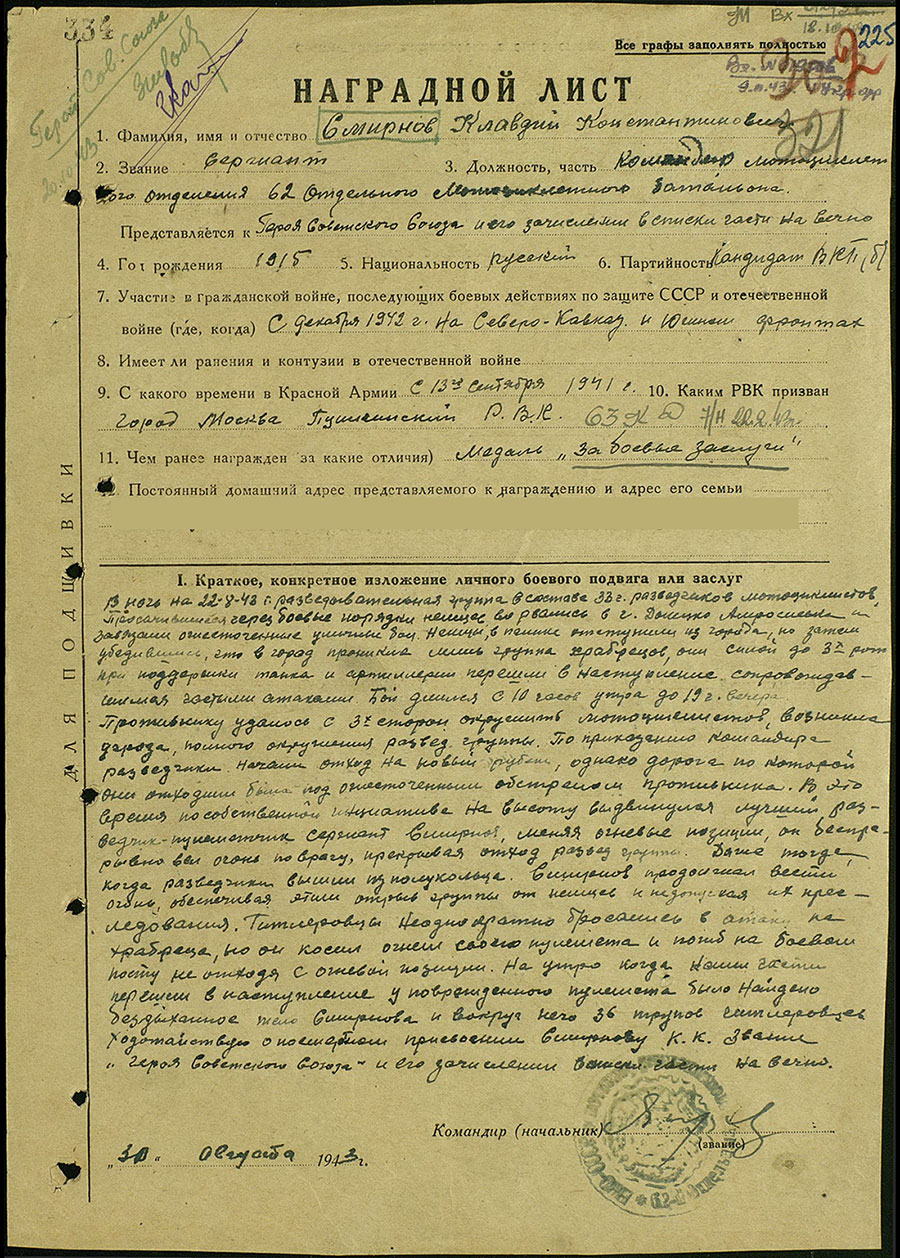 334
225
18.10.43
Герой Сов. Союза
Все графы заполнять полностью
НАГРАДНОЙ ЛИСТ
321
1. Фамилия, имя и отчество Смирнов Клавдий Константинович
2. Звание Сержант 3. Должность, часть Командир мотоциклет
ного отделения 62 Отдельного Мотоциклетного батальона.
Представляется к Героя Советского Союза и его зачислении в списки части на вечно
4. Год рождения 1915 5. Национальность русский 6. Партийность Кандидат ВКП(б)
7. Участие в гражданской войне, последующих боевых действиях по защите СССР и отечественной
войне (где, когда) С декабря 1942 г. на Северо-Кавказ. и Южном фронтах
8. Имеет ли ранения и контузии в отечественной войне
9. С какого времени в Красной Армии с 13го сентября 1941 г. 10. Каким РВК призван
город Москва Пушкинский Р.В.К. 63 КД
11. Чем ранее награжден за какие отличия) Медаль „За боевые заслуги"
12. Постоянный домашний адрес представляемого к награждению и адрес его семьи
ДЛЯ ПОДШИВКИ
I. Краткое, конкретное изложение личного боевого подвига или заслуг
В ночь на 22-8-43 г. разведывательная группа в составе 33 г. разведчиков мотоциклистов
Просочившиеся через боевые порядки немцев ворвались в г. Донцко Амросиевка и
завязали ожесточенные уличные бои. Немцы, в панике отступили из города, но затем
убедившись, что в город проникла лишь группа храбрецов, они силой до 3х рот
при поддержки танка и артиллерии перешли в наступление сопровождав-
шимся частыми атаками. Бой длился с 10 часов утра до 19 г. вечера.
Противнику удалось с 3х сторон окружить мотоциклистов, возникла
полного окружения развед. группы. По приказанию командира
разведчики начали отход на новый рубеж, однако дорога по которой
они отходили была под ожесточенными обстрелом противника. В это
время по собственной инициативе на высоту выдвинулся лучший раз-
ведчик-пулеметчик сержант Смирнов, меняя огневые позиции, он беспре-
рывно вел огонь по врагу, прекрывая отход развед группы. Даже тогда,
когда разведчики вышли из полукольца. Смирнов продолжал вести
огонь, обеспечивая этим отрыв группы от немцев и недопуская их прес-
ледования. Гитлеровцы неоднократно бросались в атаку на
храбреца, но он косил огнем своего пулемета и погиб на боевом
посту не отходя с огневой позиции. На утро когда наши части
перешли в наступление у поврежденного пулемета было найдено
бездыханное тело Смирнова и вокруг него 36 трупов гитлеровцев
Ходатайствую о посмертном присвоении Смирнову К.К. Звании
„Героя Советского Союза" и его зачислении в списки части на вечно.
Командир (начальник)
(звание)
„30" Августа 1943 г.